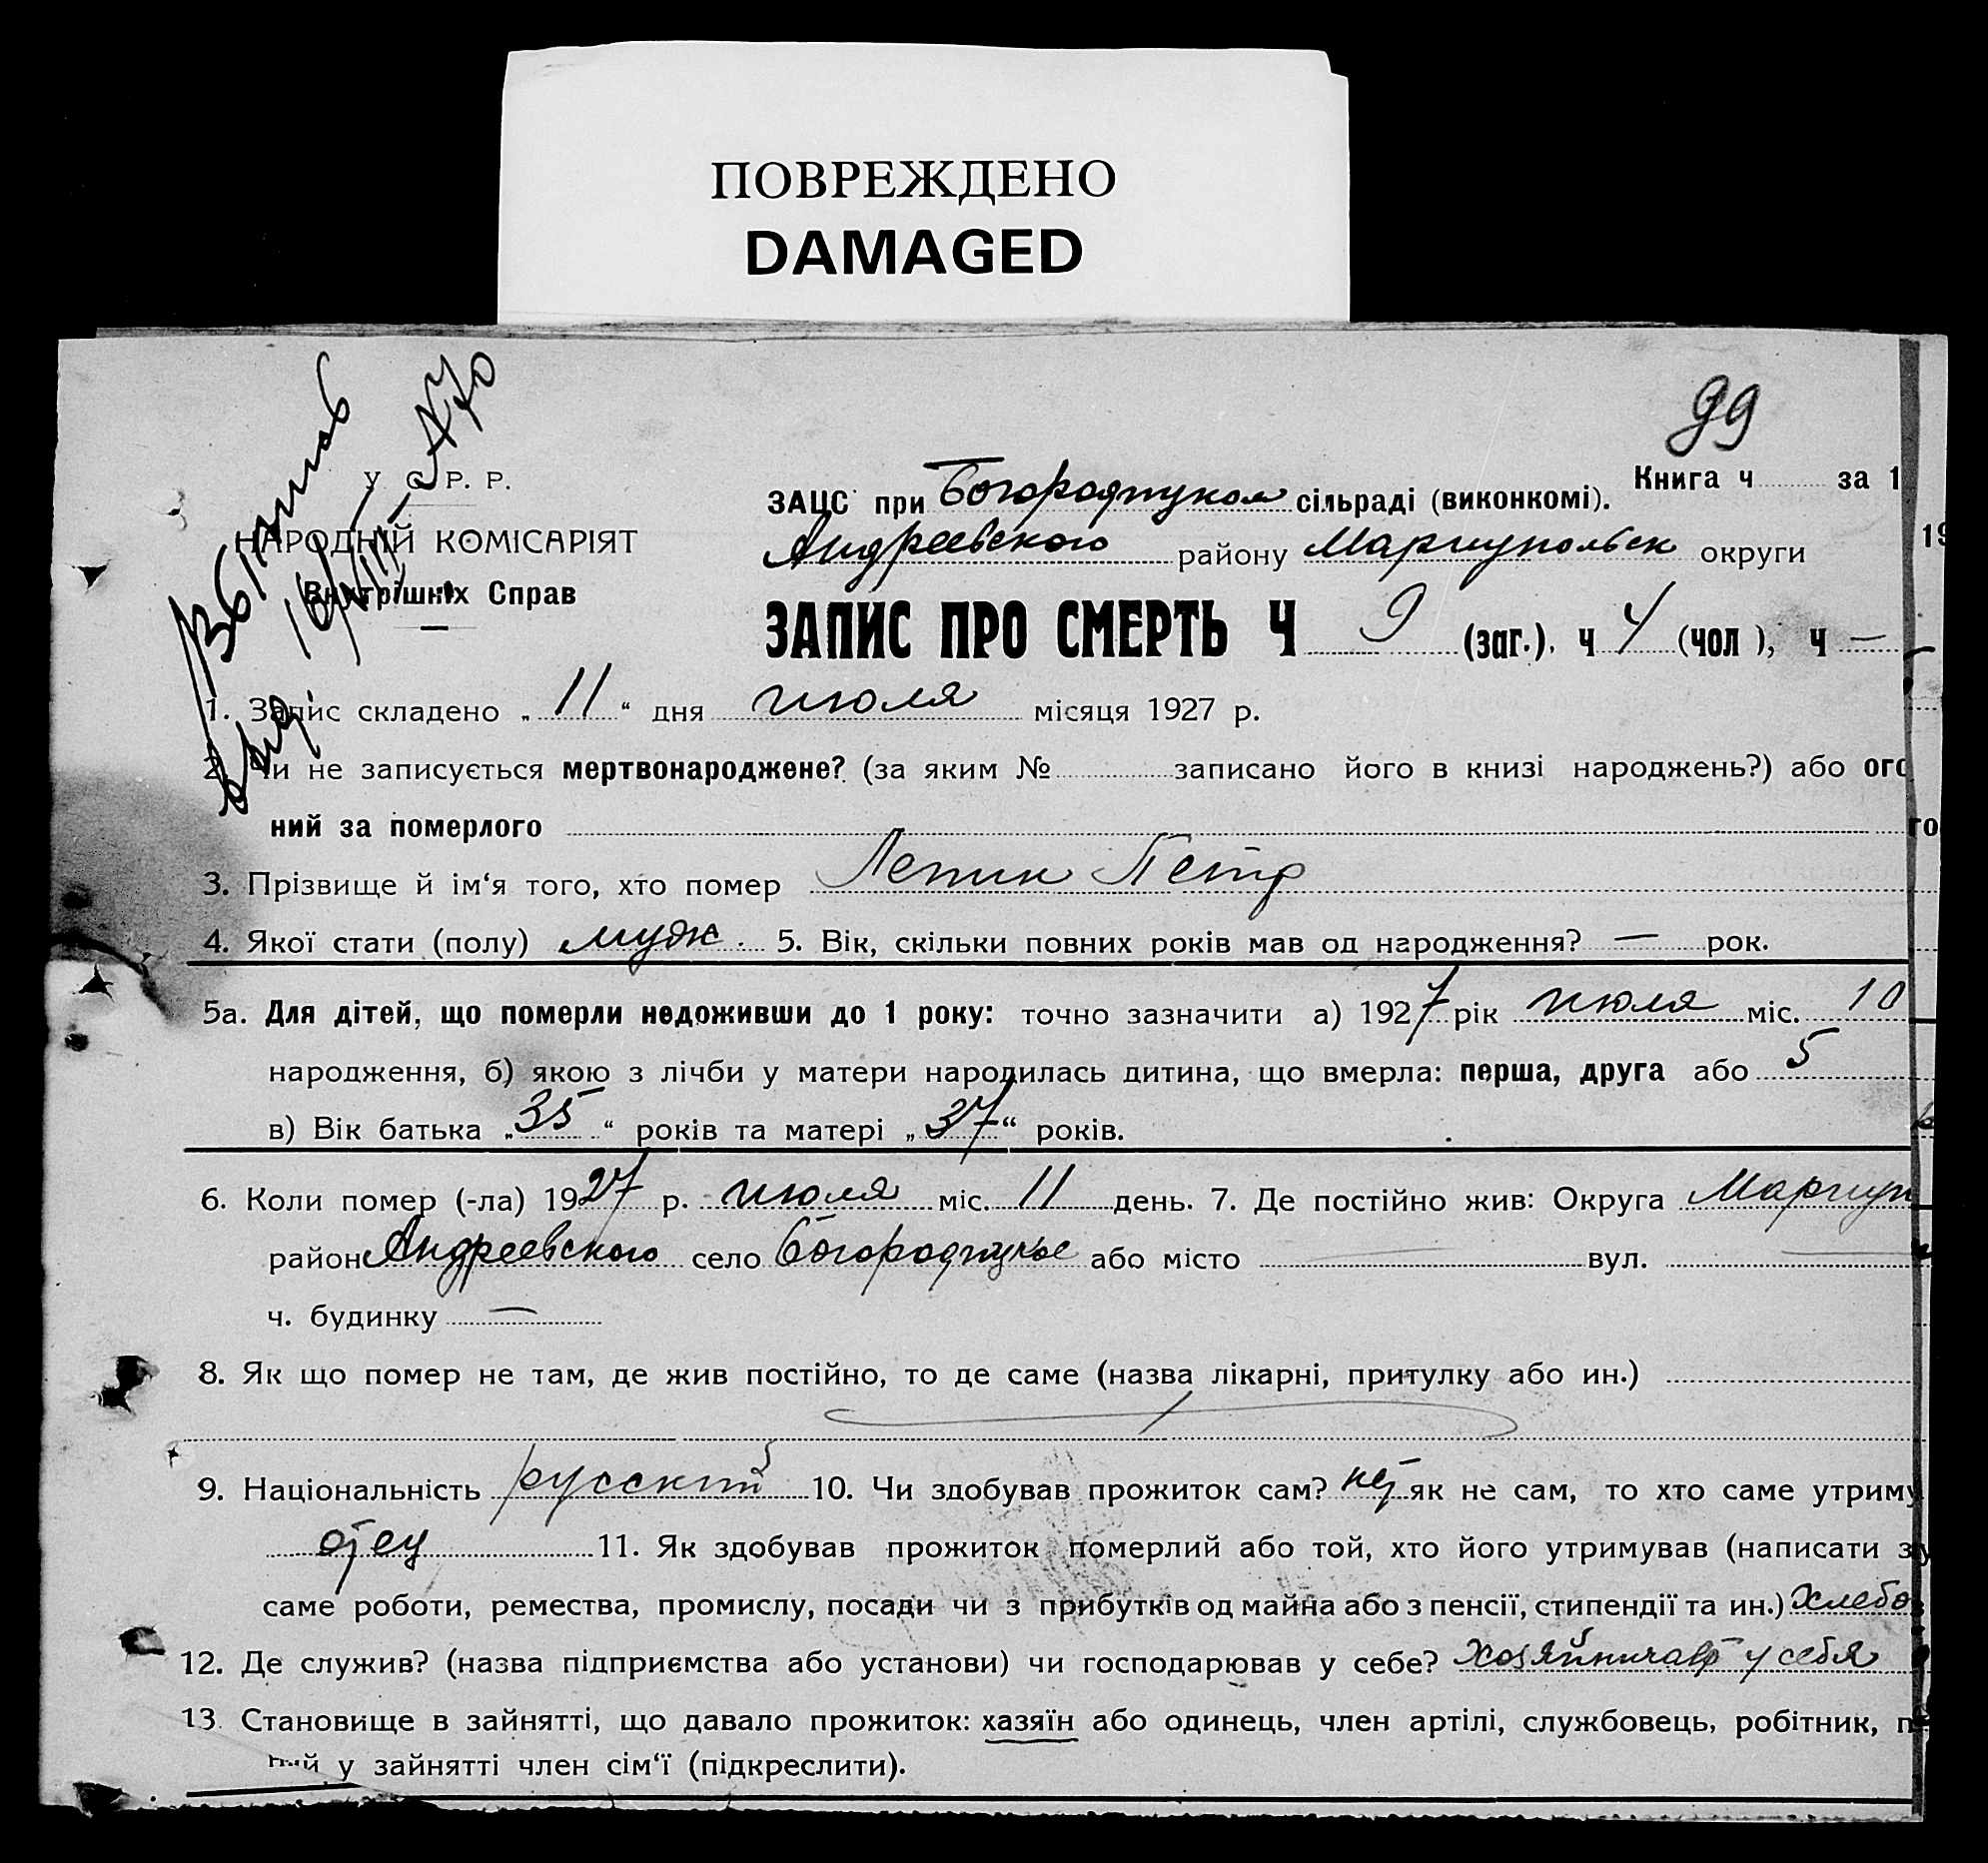 ПОВРЕЖДЕНО
DAMAGED
99
У. С. Р. Р.
Книга ч за 1
ЗАЦС при сільраді (виконкомі).
19
НАРОДНІЙ КОМІСАРІЯТ
Андреевского району Мариупольск округи
Внутрішніх Справ
ЗАПИС ПРО СМЕРТЬ Ч 9 (заг.). ч 4 (чол ), ч —
1. Запис складено „ 11 “ дня июля місяця 1927 р.
2. Чи не записується мертвонароджене? (за яким № записано його в книзі народжень?) або ого
ний за померлого го
3. Прізвище й ім‘я того, хто помер Петр
4. Якої стати (полу) мудж. 5. Вік, скільки повних років мав од народження? — рок.
5а. Для дітей, що померли недоживши до 1 року: точно зазначити а) 1927 рік июля міс. 10
народження, б) якою з лічби у матери народилась дитина, що вмерла: перша, друга або 5
в) Вік батька „ 35 “ років та матері „ 37 “ років.
6. Коли помер (-ла) 1927 р. июля міс. 11 день. 7. Де постійно жив: Округа Мариуп
район Андреевского село або місто — вул. —
ч. будинку —
8. Як що помер не там, де жив постійно, то де саме (назва лікарні, притулку або ин.)
9. Національність русский 10. Чи здобував прожиток сам? нет як не сам, то хто саме утриму
отец 11. Як здобував прожиток померлий або той, хто його утримував (написати з
саме роботи, ремества, промислу, посади чи з прибутків од майна або з пенсії, стипендії та ин.) хлебо
12. Де служив? (назва підприємства або установи) чи господарював у себе? у себя
13. Становище в зайнятті, що давало прожиток: хазяїн або одинець, член артілі, службовець, робітник, п
ний у зайнятті член сім‘ї (підкреслити).